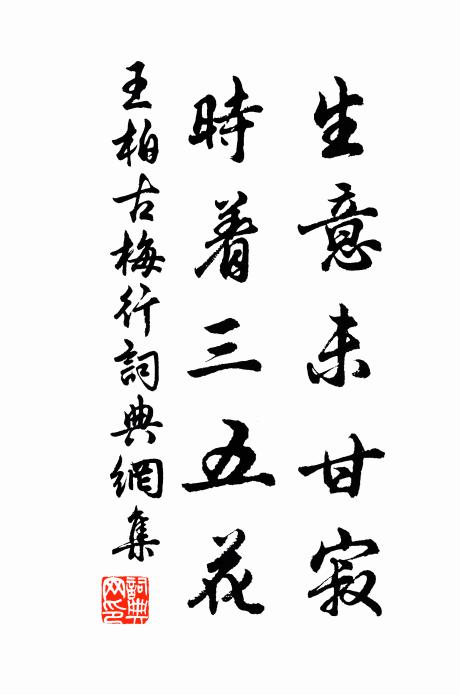 生意未甘寂
時着三五花
王柏古梅行詞典網集
詞典网印